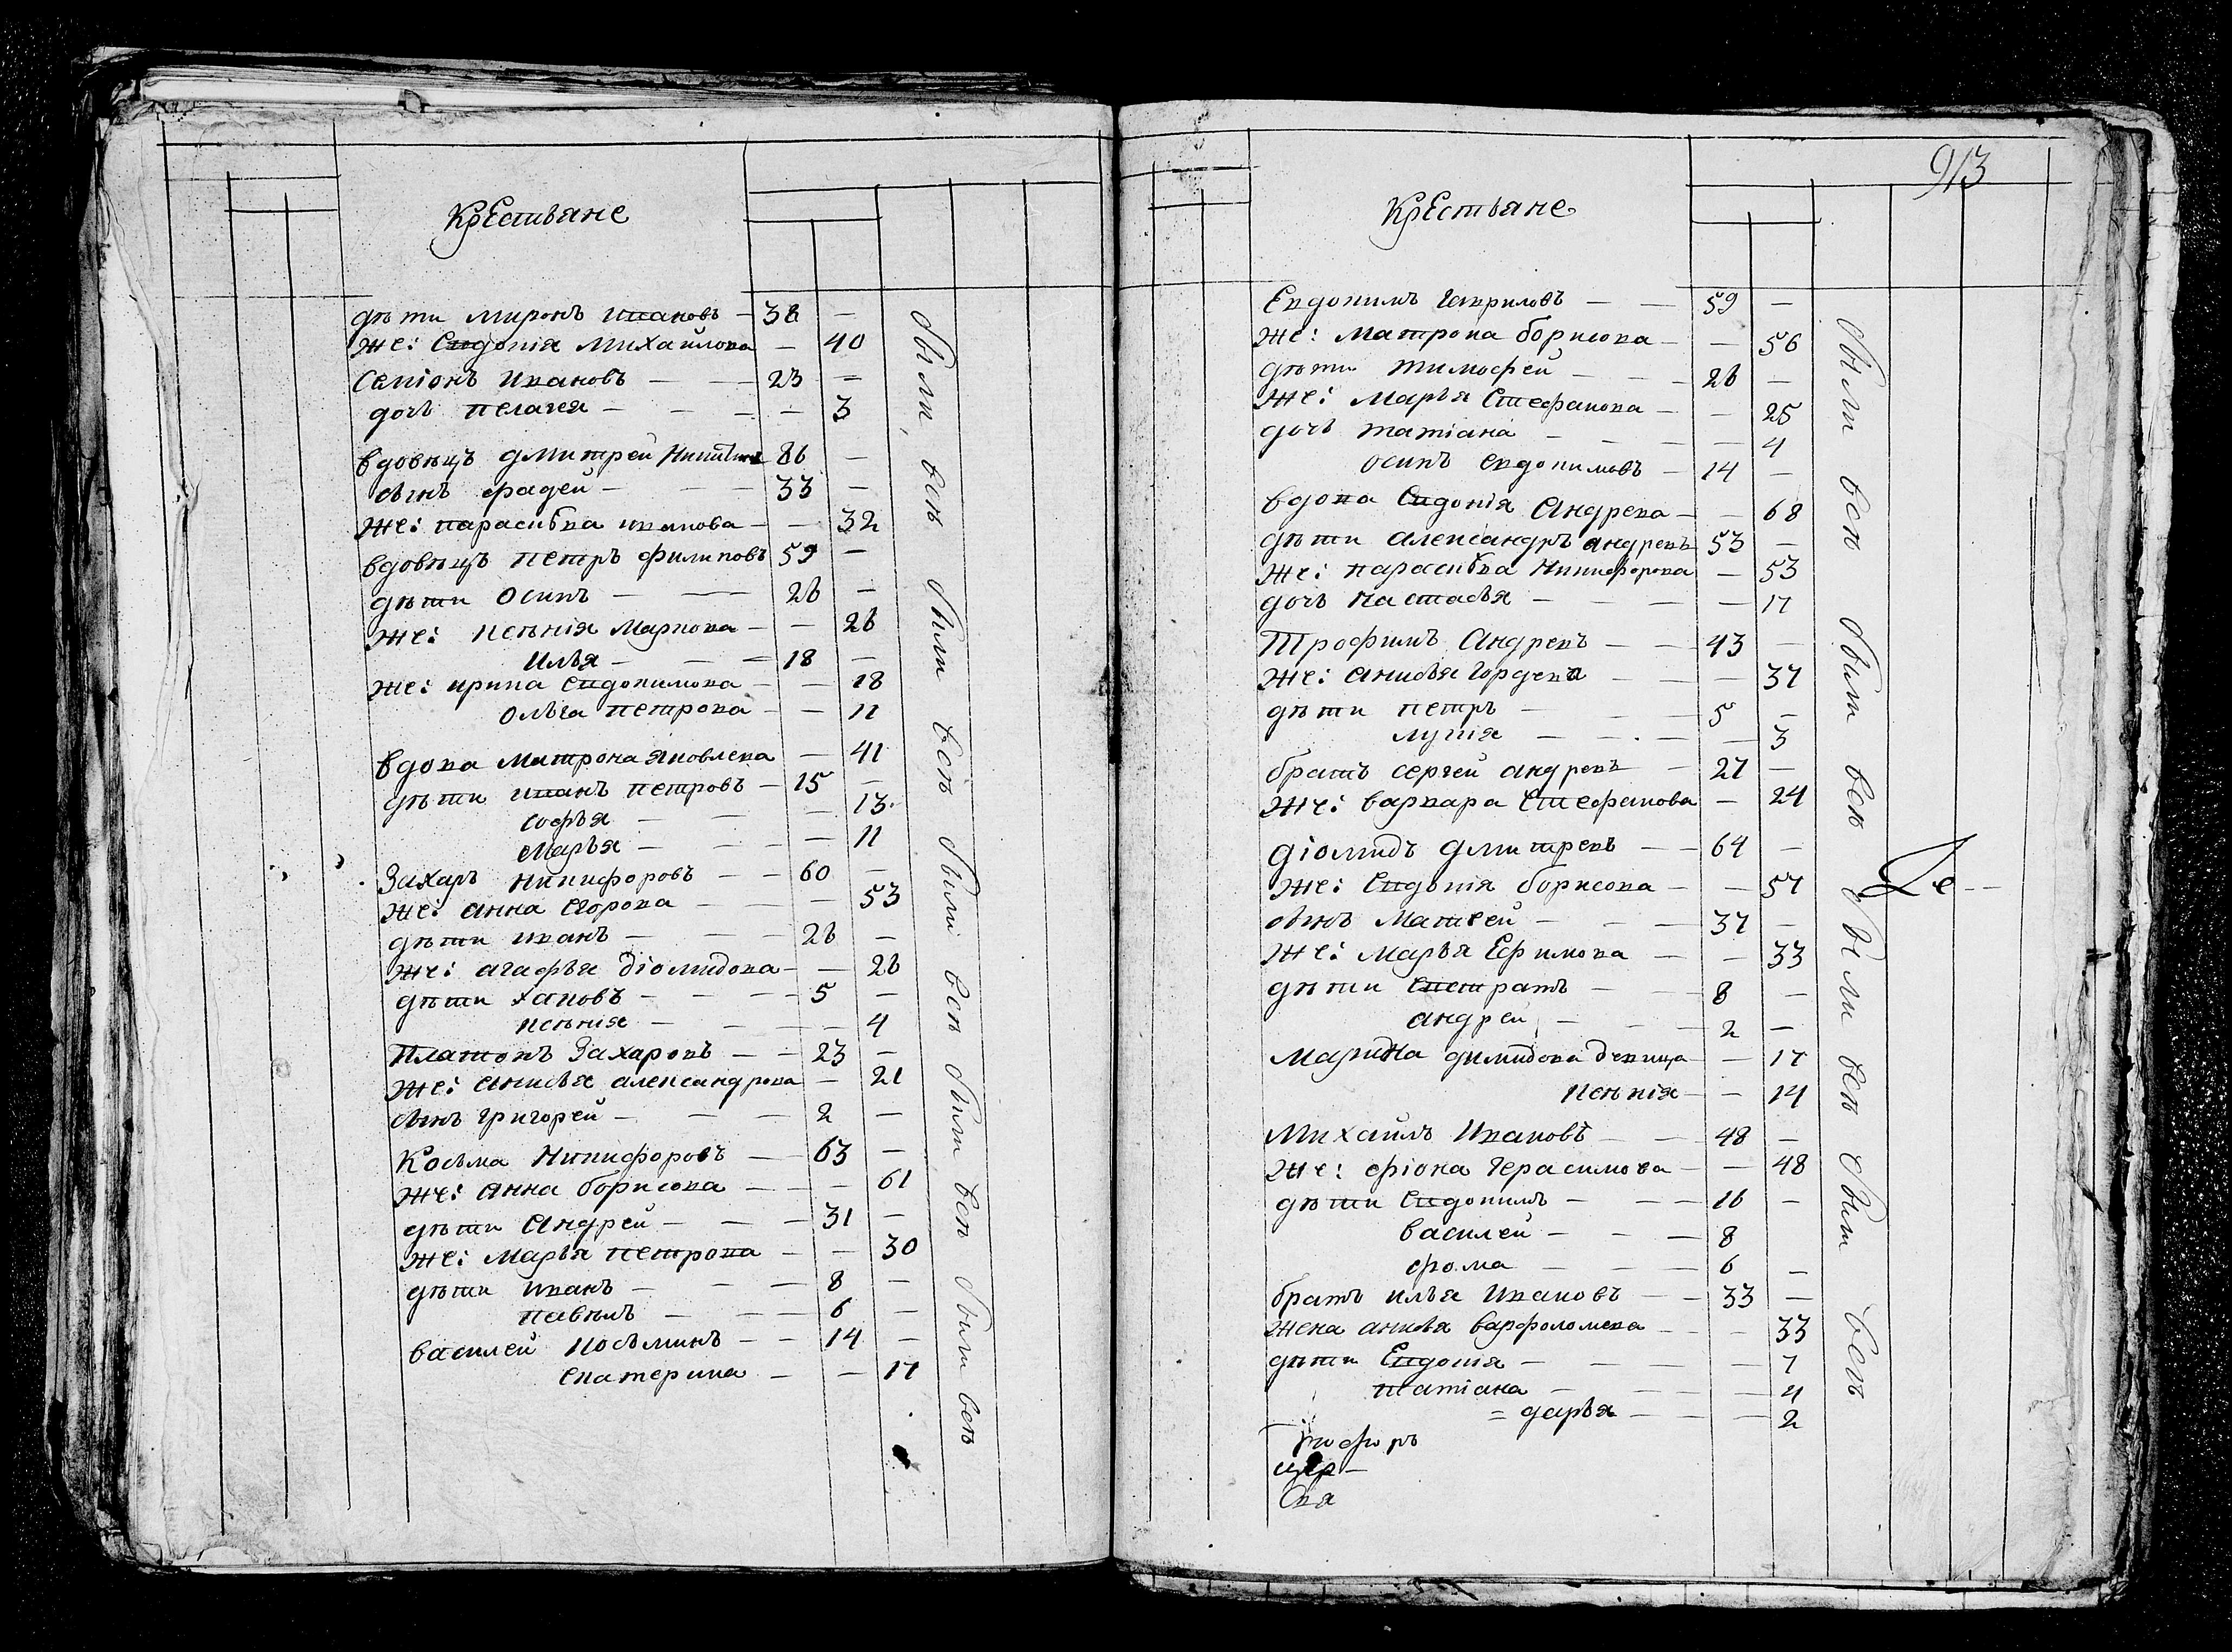 Крестьяне
дѣти миронъ ивановъ — 38 —
же: Евдокія Михаилова — 40
Семіонъ Ивановъ — — 23 —
дочь пелагея — — — — 3
вдовецъ дмитрей Никитинъ 86 —
сынъ фадей — — 33 —
же: парасковя иванова — — 32
вдовецъ петръ филиповъ 59 —
дѣти Осипъ — — 26 —
же: ксѣнія Маркова — — 26
Илья — — 18 —
же: ирина Евдокимова — — 18
Ольга петрова — — 11
вдова матрона яковлева — 41
дѣти иванъ петровъ — 15 —
софья — — — 13
марья — — — 11
Захаръ никифоровъ — — 60 —
же: анна егорова — — — 53
дѣти иванъ — — — 26 —
же: агафья діомидова — — 26
дѣти — — — 5 —
ксѣнія — — — 4
Платонъ Захаровъ — — 23 —
же: анисья александрова — 21
сынъ григорей — — — 2 —
Косьма Никифоровъ — 63 —
же: Анна борисова — — 61
дѣти Андрей — — — 31 —
же: Марья петрова — — 30
дѣти иванъ — — — 8 —
павелъ — — — 6 —
василей косьминъ — — 14 —
екатерина — — 17
были всѣ были всѣ были всѣ были всѣ были всѣ
913
Крестьяне
Евдокимъ гавриловъ — — 59 —
же: Матрона борисова — — 56
дѣти тимофей — — — 26 —
же: Марья Стефанова — — 25
дочь татіана — — — — 4
осипъ евдокимовъ — 14 —
вдова Евдокія Андрева — — 68
дѣти александръ андревъ 53 —
же: парасковя Никифорова — 53
дочь настасья — — — — 17
Трофимъ Андревъ — — 43 —
же: анисья гордева — — — 37
дѣти петръ — — — 5 —
лукія — — — — 3
братъ сергей андревъ — 27 —
же: варвара Стефанова — 24
діомидъ дмитревъ — — 64 —
же: Евдокія борисова — — 57
сынъ Матвей — — — 37 —
же: Марья Ефимова — — 33
дѣти — — 8 —
андрей — — — 2 —
Марина димидова девица — 17
ксѣнія — — 14
Михаилъ Ивановъ — — 48 —
же: фіона герасимова — — 48
дѣти Евдокимъ — — — 16 —
василей — — — 8
фома — — — 6 —
братъ илья Ивановъ — — 33 —
жена анисья варфоломева — — 33
дѣти Евдокія — — — — 7
татіана — — — — 4
= дарья — — — 2
были всѣ были всѣ были всѣ были всѣ